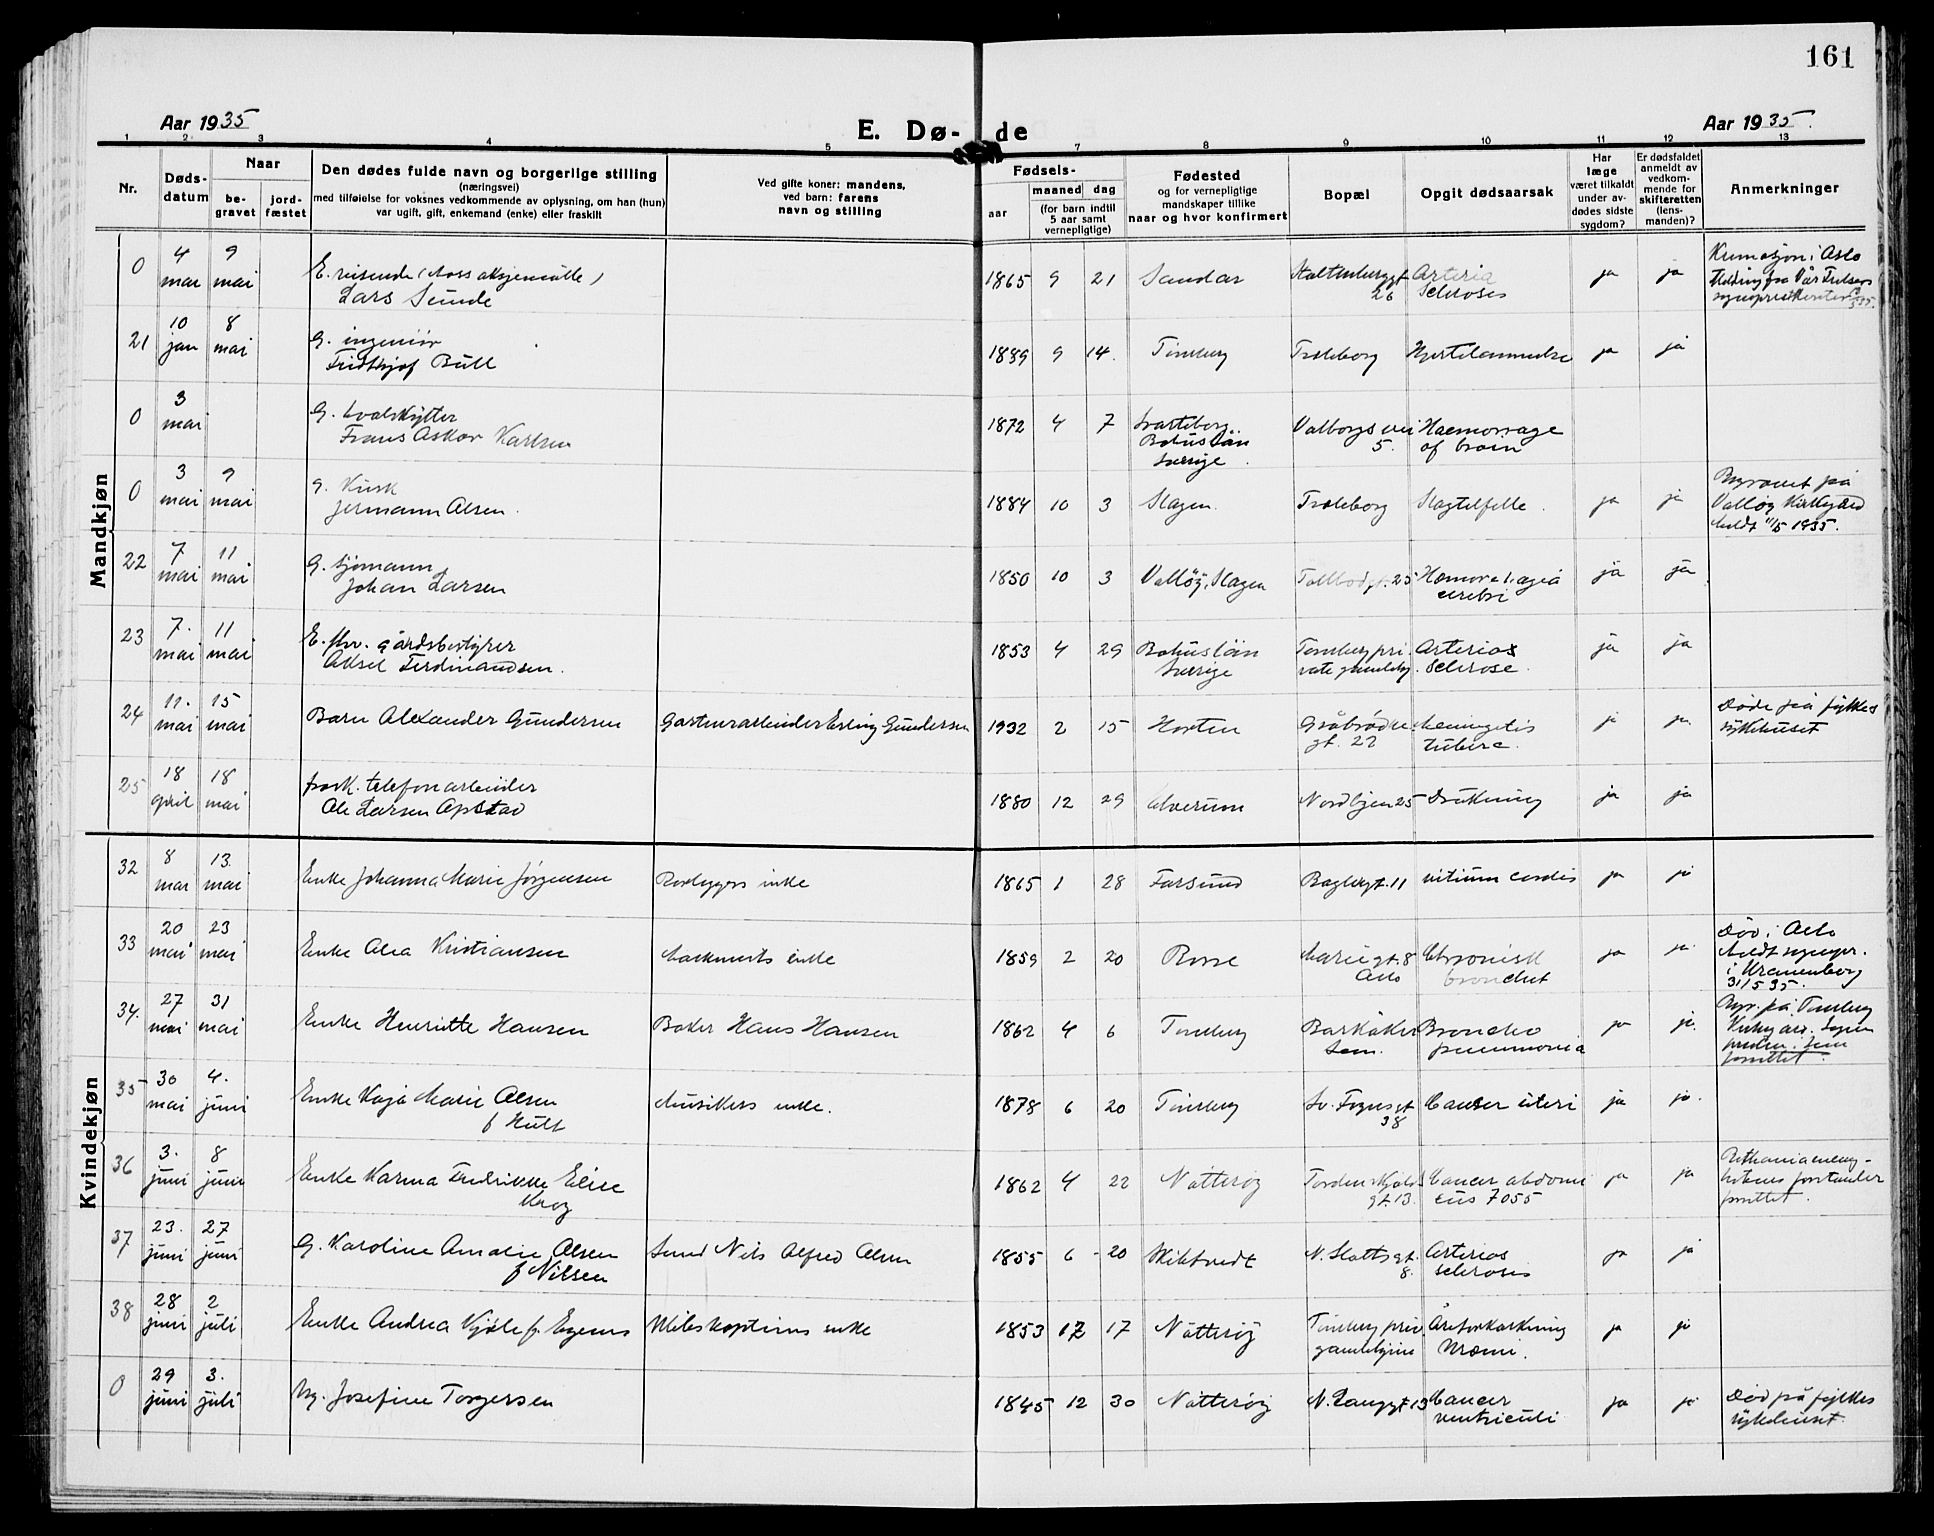 161
Aar 1935
E. Dø- de
Aar 1935.
1 2 3 4 5 7 8 9 10 11 12 13
Nr.
Døds-
datum
Naar
be-
gravet
jord-
fæstet
Den dødes fulde navn og borgerlige stilling
(næringsvei)
med tilføielse for voksnes vedkommende av oplysning, om han (hun)
var ugift, gift, enkemand (enke) eller fraskilt
Ved gifte koner: mandens,
ved barn: farens
navn og stilling
Fødsels-
aar
maaned dag
(for barn indtil
5 aar samt
vernepligtige)
Fødested
og for vernepligtige
mandskaper tillike
naar og hvor konfirmert
Bopæl
Opgit dødsaarsak
Har
læge
været tilkaldt
under av-
dødes sidste
sygdom?
Er dødsfaldet
anmeldt av
vedkom-
mende for
skifteretten
(lens-
manden)?
Anmerkninger
Mandkjøn
0 4 mai 9 mai E. reisende
Lars Sunde
1865 9 21 Sandar 26 Arteria
Sclerosis ja ja
21 10 jan 8 mai G. ingeniör
Fridthjof Bull
1889 9 14. Tönsberg Træleborg Hjertelammelse ja ja
0 3 mai G. hvalskytter
Frans Oskar Karlsen
1872 4 7 Svarteborg
Bohuslän
Sverige.
Valborgs vei
5.
Haemorrage
of brain
0 3 mai 9 mai G. Kusk
Jermann Olsen.
1884 10 3 Slagen. Træleborg Slagtilfelle. ja ja Begravet på
Vallöy Kirkegård
meldt 11/5 1935.
22 7 mai 11 mai G. sjömann
Johan Larsen
1850 10 3 Vallöy, Slagen Tollbodgt. 25 Hæmorahagia
cerebri ja ja
23 7. mai 11 mai E. fhv. gårdsbestyrer
Aksel Ferdinandsen.
1853 4 29 Bohuslän
Sverige
Tönsberg pri-
vate gamlehj.
Arterios
sclerose. ja ja
24 11. mai 15 mai Barn Alexander Gundersen Gartnerarbeider Erling Gundersen
1932 2 15 Horten Gråbrödre
gt. 22
Meningitis
tuberc. ja Döde på fylkes
sykehuset
25 18 april 18 mai frask. telefonarbeider
Ole Larsen Opstad
1880 12 29 Elverum Nordbyen 25 Drukning ja ja
Kvindekjøn
32 8 mai 13. mai Enke Johanna Marie Jörgensen enke
1865 1 28 Farsund Baglergt. 11 vitium cordis ja ja
33 20 mai 23 mai Enke Olea Kristiansen enke
1859 2 20 Borre Mariegt. 8
Oslo
Chronisk
bronchit ja ja Död i Oslo
Meldt sognepr.
i Uranienborg
31/5 35.
34. 27 mai 31 mai Enke Henriette Hansen Baker Hans Hansen
1862 4 6 Tönsberg Barkåker
Sem.
Broncho
pneumonia ja ja. Begr. på Tönsberg
35 30 mai 4. juni Enke Kaja Marie Olsen
f Hult
Musikers enke.
1878 6 20 Tönsberg Sv. Foynsgt
38
Cancer uteri ja ja.
36 3. juni 8 juni Enke Karma Fredrikke Elise
Krog
1862 4 22 Nötteröy Tordenskjolds
gt. 13.
Cancer abdomi
ja ja
37 23. juni 27 juni G. Karoline Amalie Olsen
f Nilsen
Smed Nils Alfred Olsen
1855 6 20 Skibtvedt N. Slottsgt.
8.
Arterios
sclerosis ja ja
38 28 juni 2 juli Enke Andrea Kjöle f. enke
1853 12 17 Nötteröy Tönsberg priv.
gamlehjem
Åreforkalkning
ja ja
0 29 juni 3. juli Ug. Josefine Torgersen
1845 12 30 Nötteröy N. Langgt 13 Cancer
ventriculi ja ja Död på fylkes
sykehuset.